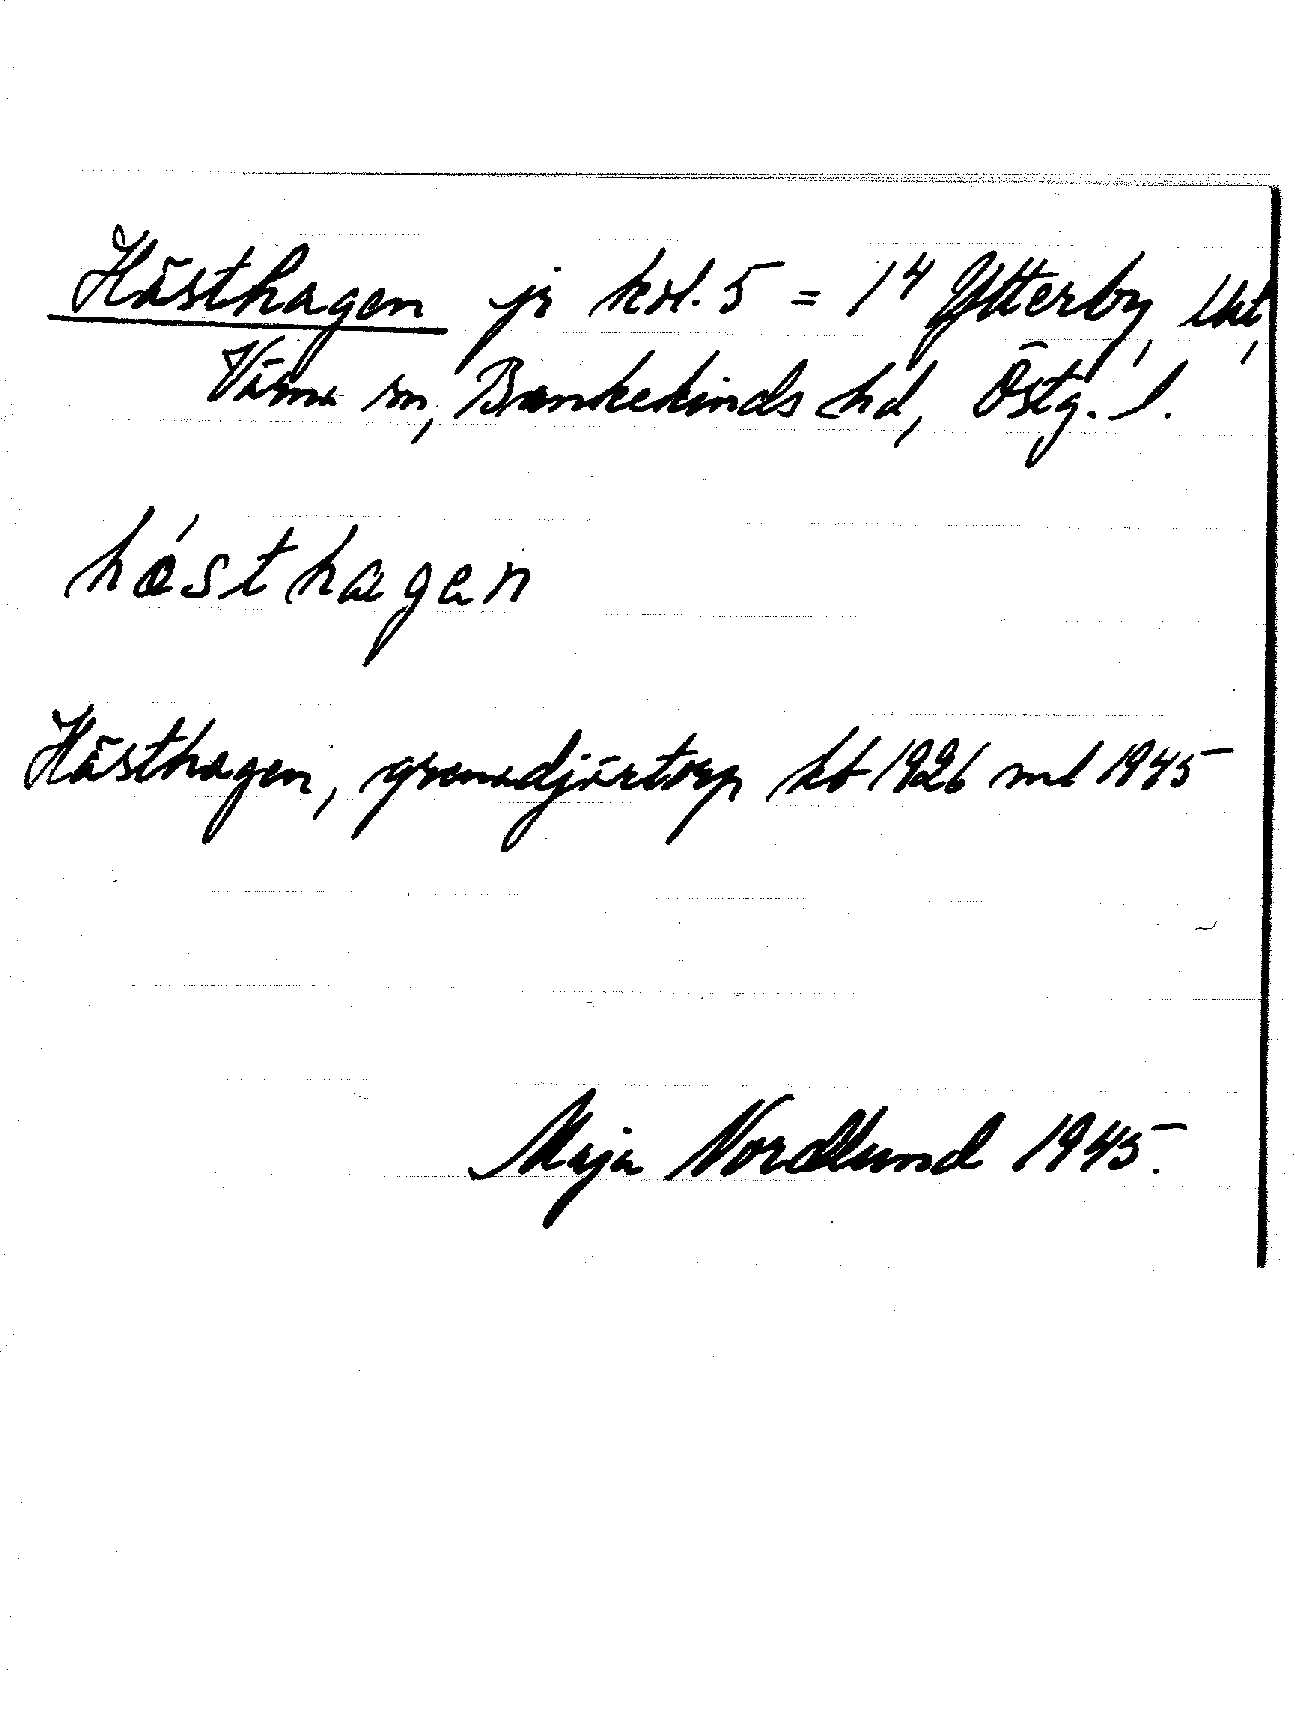 Hästhagen på kol. 5 = 1⁴ Ytterby, lht,
Värna sn, Bankekinds hd, Östg. l.
hǿsthagen
Hästhagen, grenadjärtorp kb 1926 ml 1945
Maja Nordlund 1945.